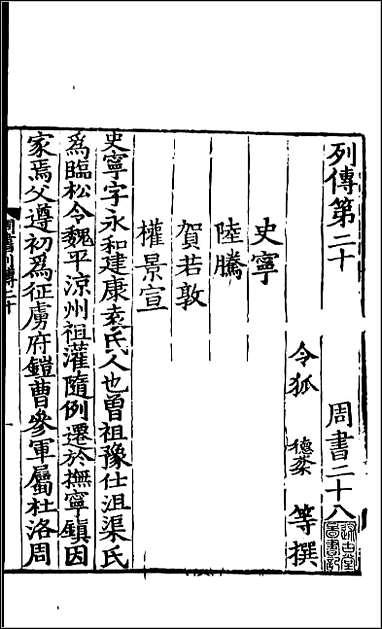 列傳第二十　周書二十八
令狐　德棻　等撰
史寧
陸騰
賀若敦
權景宣
史寧字永和建康袁氏人也曾祖豫仕沮渠氏
爲臨松令魏平涼州祖灌隨例遷於撫寧鎮因
家焉父遵初爲征虜府鎧曹參軍屬杜洛周